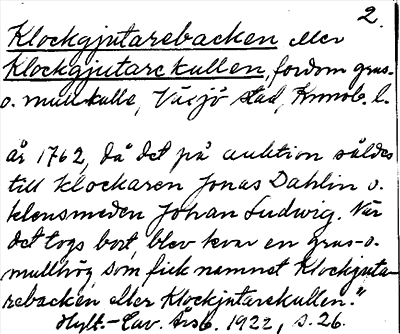 2.
Klockgjutarebacken eller
Klockgjutarekullen, fordom grus-
o. mullkulle, Växjö stad, Kronob. l.
år 1762, då det på auktion såldes
till klockaren Jonas Dahlin o.
klensmeden Johan Ludwig. När
det togs bort, blev kvar en grus- o.
mullhög, som fick namnet Klockgjuta-
rebacken eller Klockgjutarekullen."
Hylt.-Cav. Årsb. 1922, s. 26.